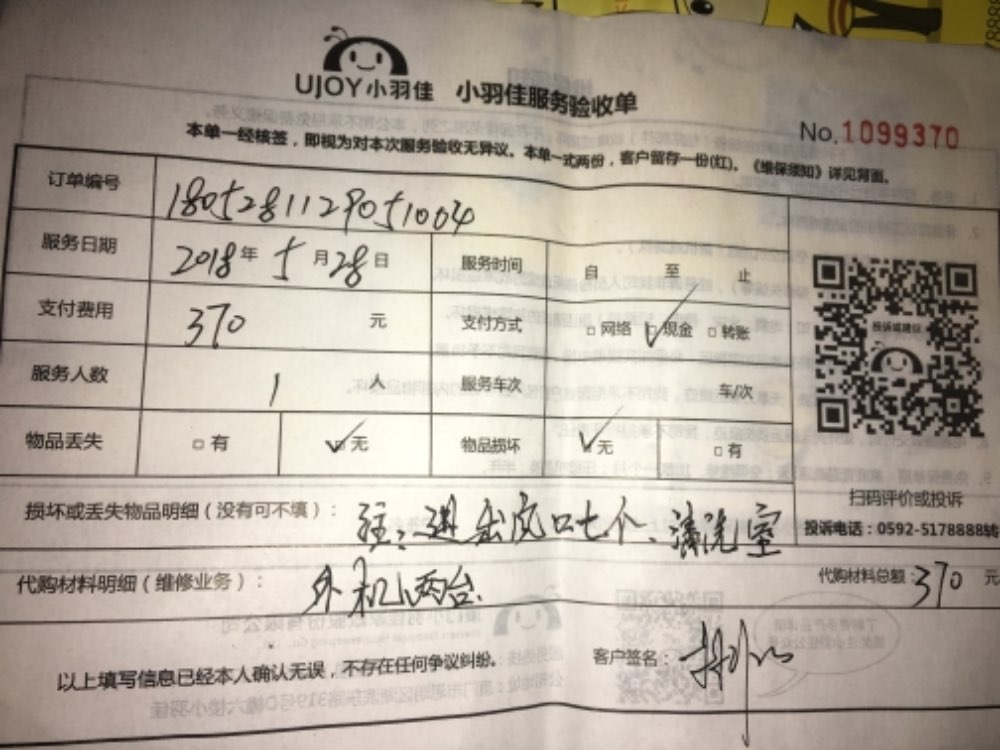 UJOY小羽佳 小羽佳服务验收单
No.1099370
本单一经核签，即视为对本次服务验收无异议。本单一式两份，客户留存一份(红)。《维保须知》详见背面。
订单编号 1805281129051004
服务日期 2018年5月28日 服务时间 自 至 止
支付费用 370 元 支付方式 □网络 □现金 □转账
投诉或建议
服务人数 1 人 服务车次 车/次
物品丢失 □有 □无 物品损坏 □无 □有
扫码评价或投诉
损坏或丢失物品明细（没有可不填）： 注：进出风口七个、清洗室
投诉电话：0592-5178888转
代购材料明细（维修业务）： 外机两台. 代购材料总额：370 元
以上填写信息已经本人确认无误，不存在任何争议纠纷。 客户签名：